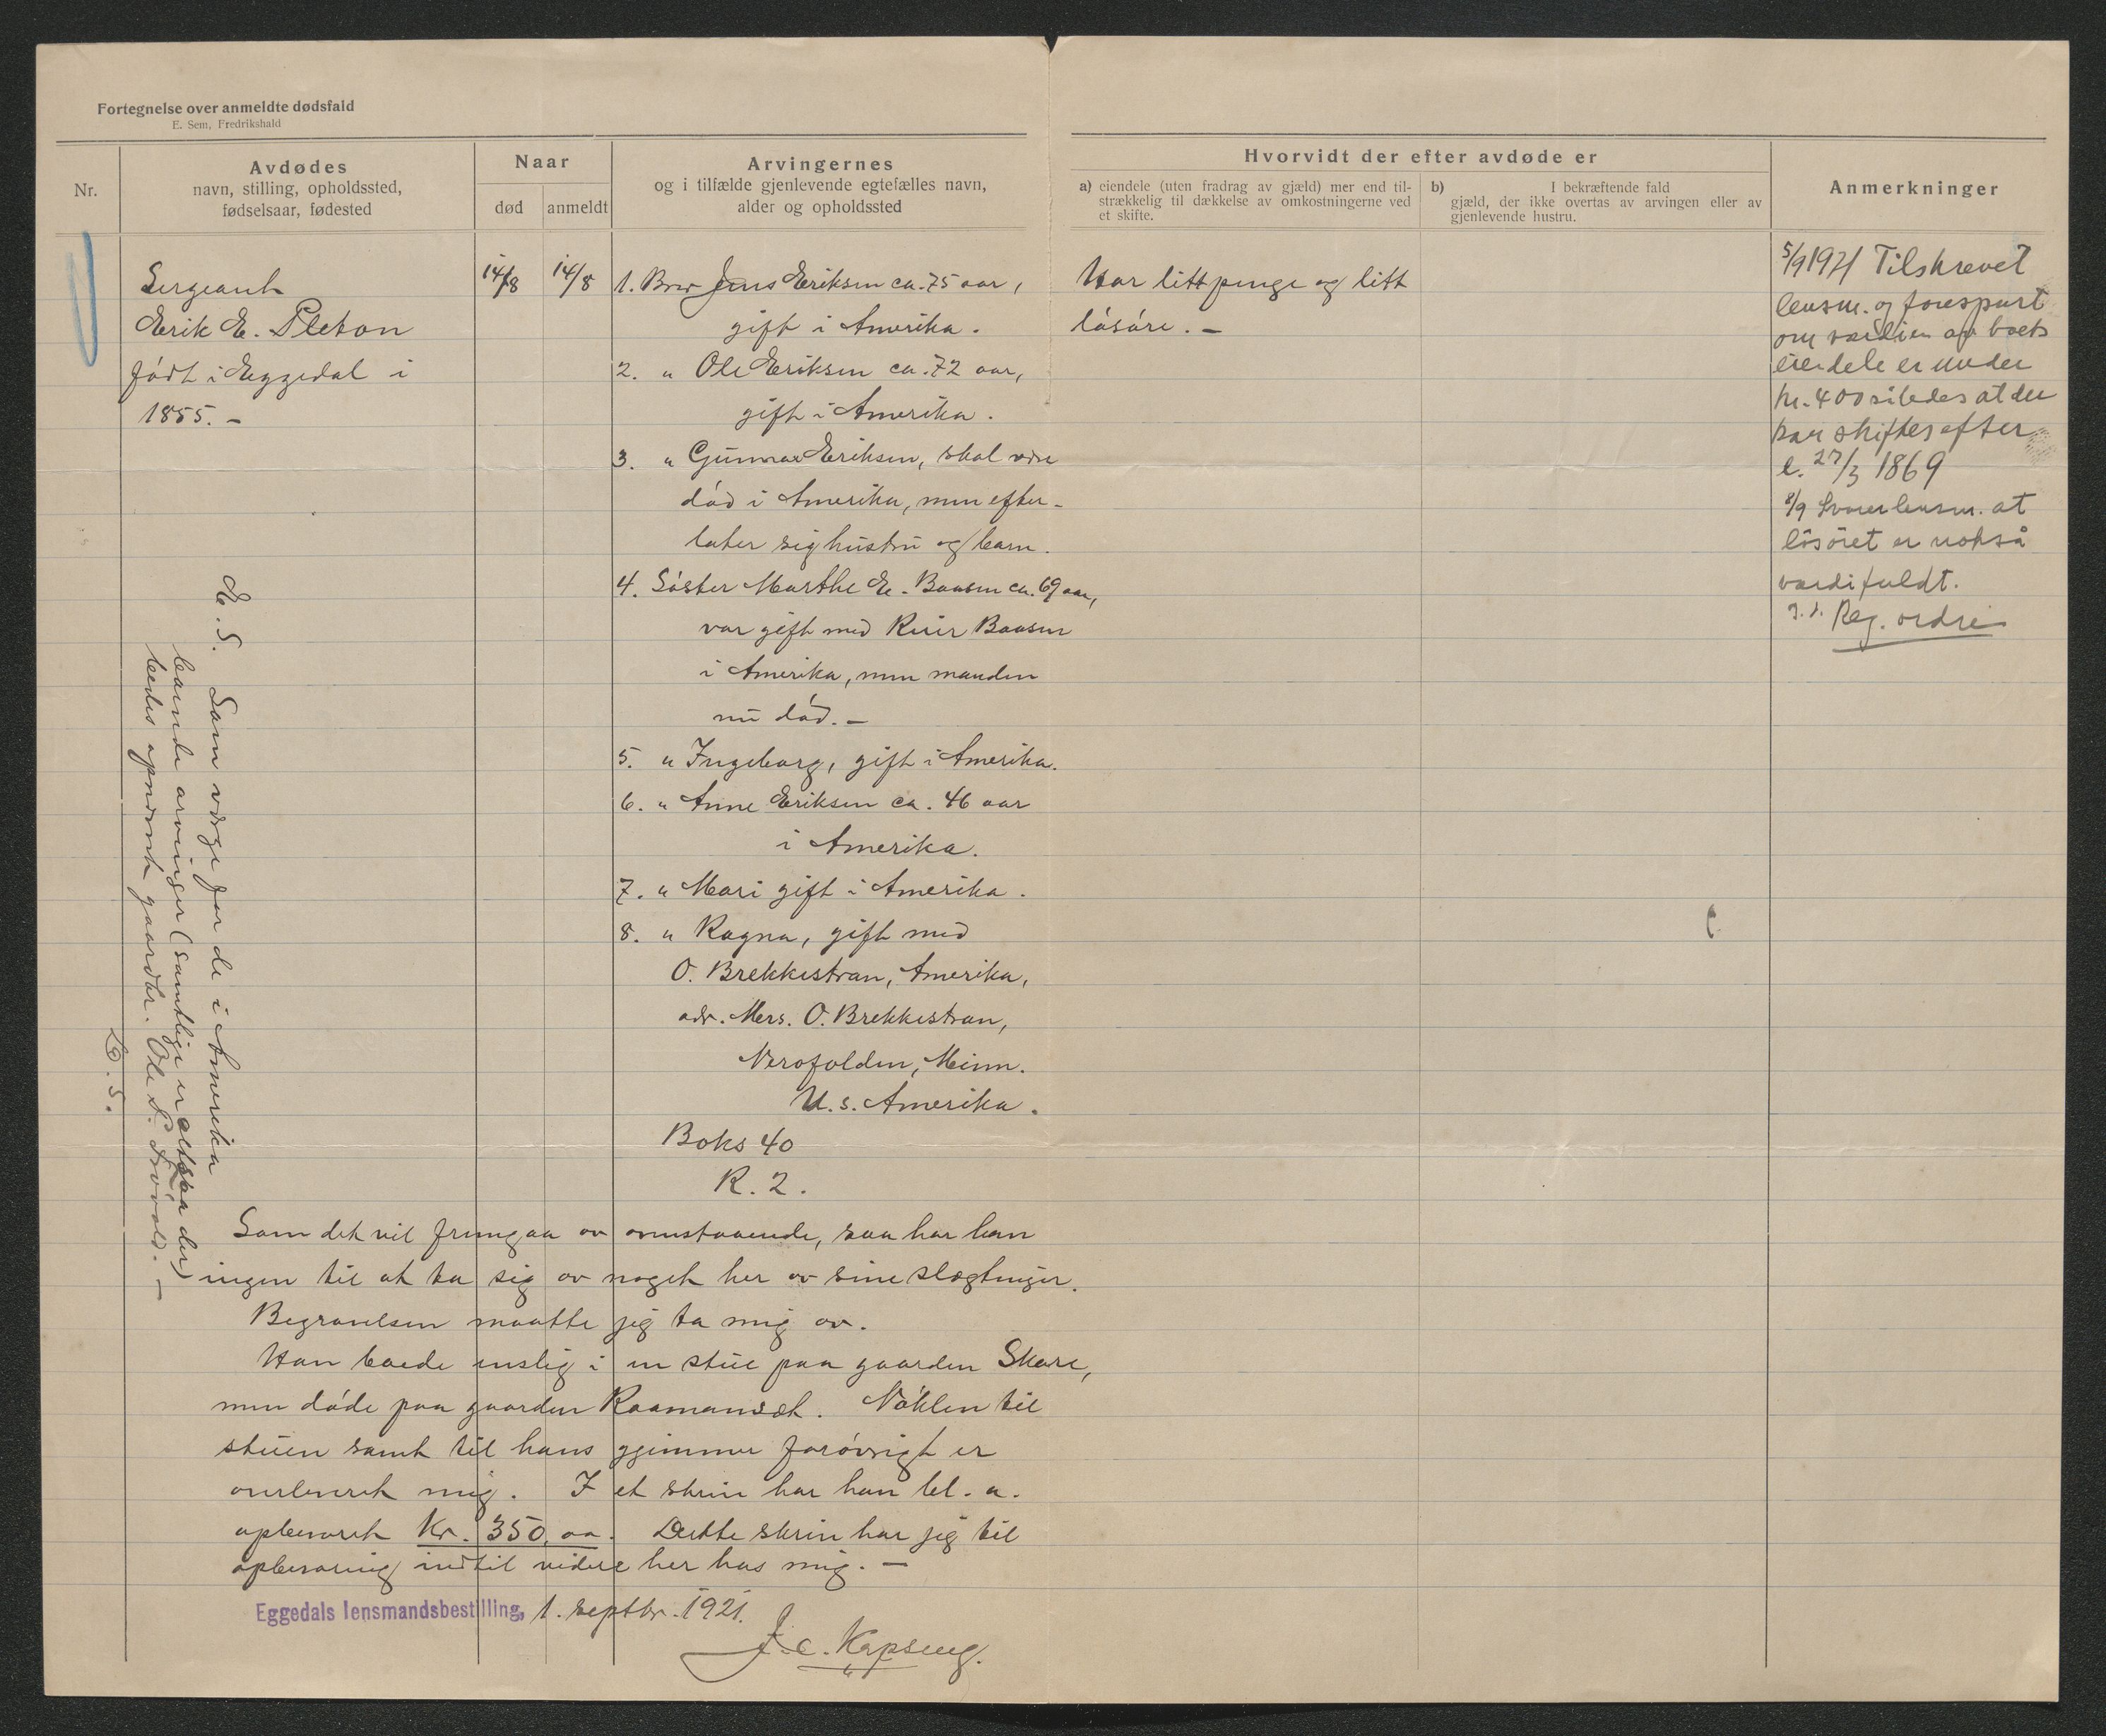 Fortegnelse over anmeldte dødsfald
E. Sem, Fredrikshald
Nr.
Avdødes
navn, stilling, opholdssted,
fødselsaar, fødested
Naar
død
anmeldt
Arvingernes
og i tilfælde gjenlevende egtefælles navn,
alder og opholdssted
Hvorvidt der efter avdøde er
a) eiendele (uten fradrag av gjæld) mer end til-
strækkelig til dækkelse av omkostningerne ved
et skifte.
b) I bekræftende fald
gjæld, der ikke overtas av arvingen eller av
gjenlevende hustru.
Anmerkninger
Sergeant
Erik E. Pleton
født i Eggedal i
1855. -
14/8
14/8
1. Bror Jens Eriksen ca. 75 aar,
gift i Amerika.
2. " Ole Eriksen ca. 72 aar,
gift i Amerika.
3. " Gunnar Eriksen, skal være
død i Amerika, men efter-
later sig hustru og barn.
4. Søster Marthe E. Baasen ca. 69 aar,
var gift med Baasen
i Amerika, men manden
nu død. -
5. " Ingeborg, gift i Amerika.
6. " Anne Eriksen ca. 46 aar
i Amerika.
7. " Mari gift i Amerika.
8. " Ragna, gift med
O. Brekkestran, Amerika,
adr. Mers. O. Brekkestran,
Nerofolden, Minn.
U. S. Amerika.
Boks 40
R. 2.
Har litt penge og litt
løsøre. -
5/9 1921 Tilskrevet
lensm. og forespurt
om værdien av boets
eiendele er under
kr. 400 således at der
kan skiftes efter
l. 27/3 1869
8/9 Svarer lensm. at
løsøret er nokså
værdifuldt.
Reg. ordre
E. S. Som værge for de i Amerika
boende arvinger (samtlige er ogsaa der)
bedes opnævnt gaardbr. Ole S.
D. S.
Som det vil fremgaa av ovenstaaende, saa har han
ingen til at ta sig av noget her av sine slegtninger.
Begravelsen maatte jeg ta mig av.
Han boede enslig i en stue paa gaarden Skare,
men døde paa gaarden Raamanset. Nøklen til
stuen samt til hans gjemmer forøvrigt er
overlevert mig. I et skrin har han bl. a.
opbevaret Kr. 350,00. Dette skrin har jeg til
opbevaring indtil videre her hos mig. -
Eggedals lensmandsbestilling, 1. septbr. 1921.
J. C. Kopseng.